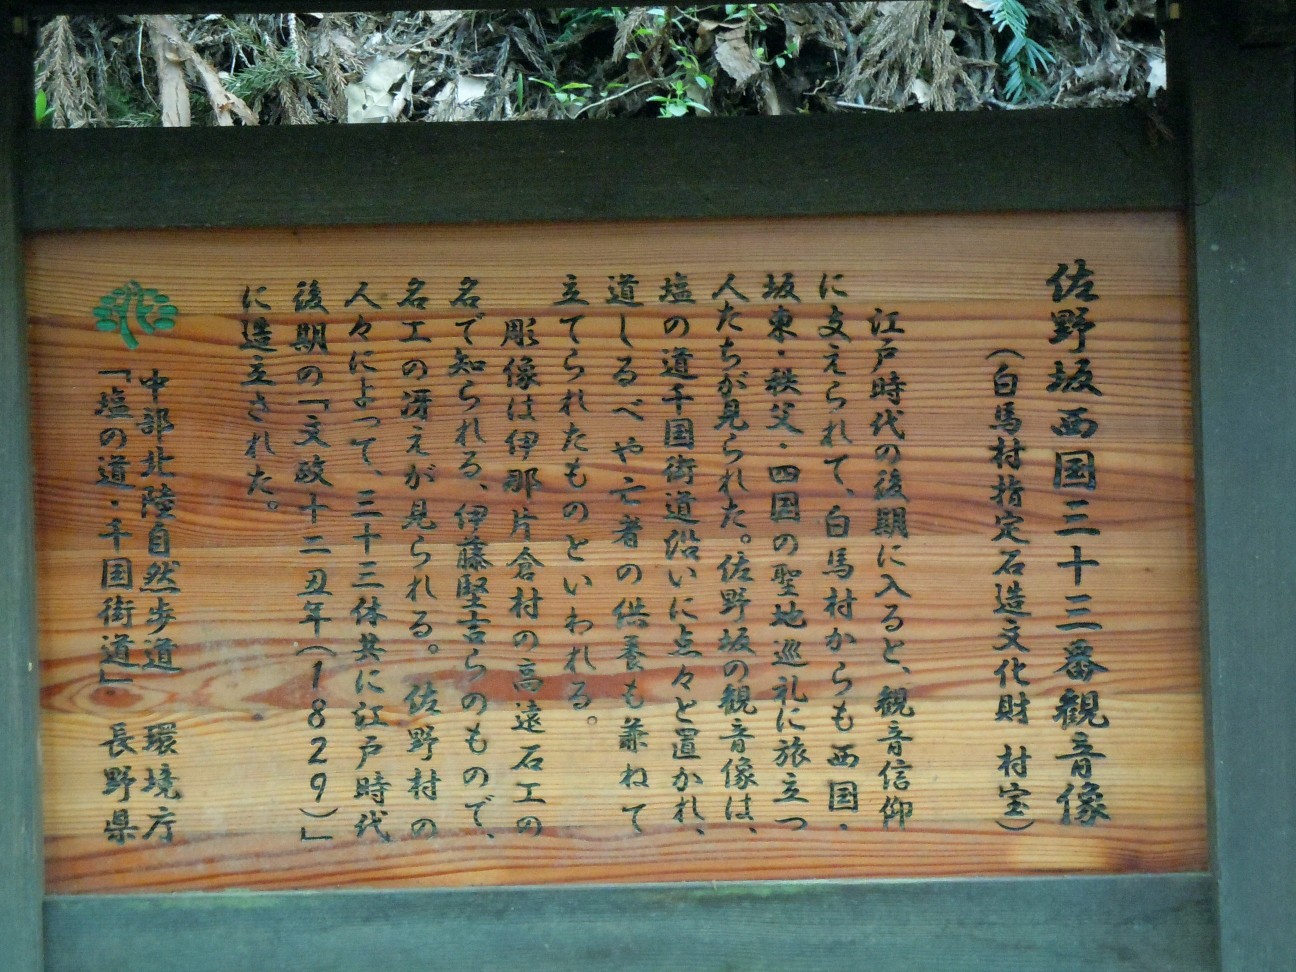 佐野坂西国三十三番観音像
（白馬村指定石造文化財　村宝）
江戸時代の後期に入ると、観音信仰
に支えられて、白馬村からも西国・
坂東・秩父・四国の聖地巡礼に旅立つ
人たちが見られた。佐野坂の観音像は、
塩の道千国街道沿いに点々と置かれ、
道しるべや亡者の供養も兼ねて
立てられたものといわれる。
彫像は伊那片倉村の高遠石工の
名で知られる、伊藤堅吉らのもので、
名工の冴えが見られる。佐野村の
人々によって、三十三体共に江戸時代
後期の「文政十二丑年（1829）」
に造立された。
中部北陸自然歩道　環境庁
「塩の道・千国街道」　長野県